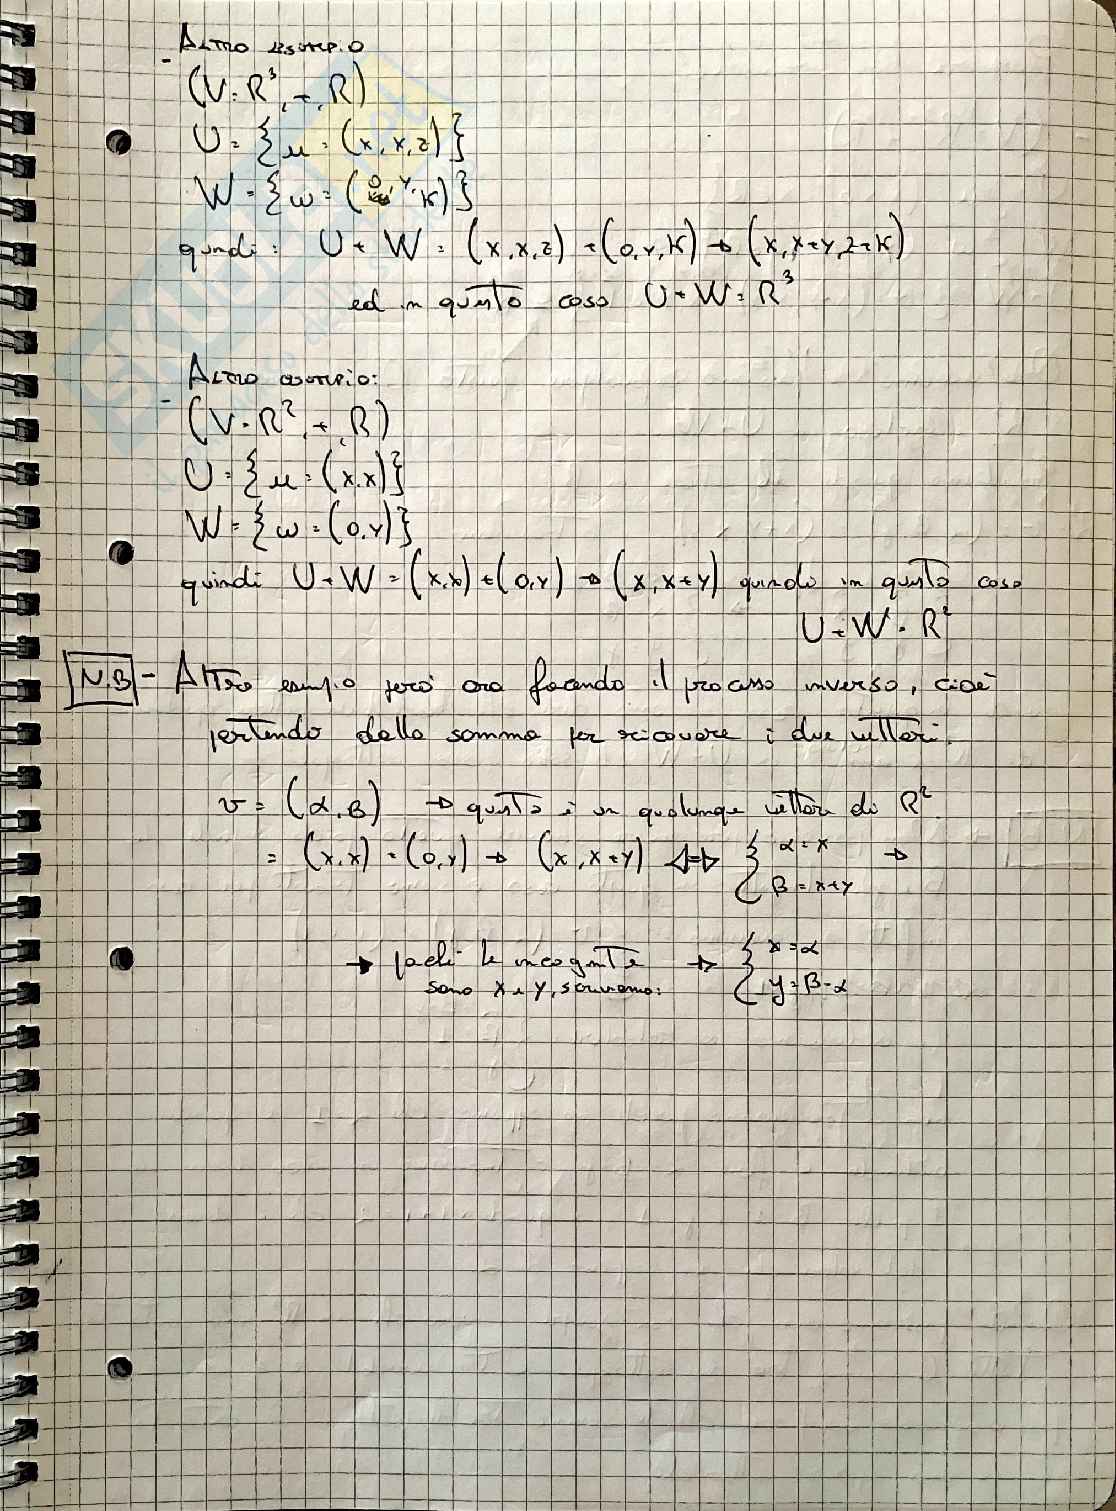 - Altro esempio
(V=R³, +, R)
U = {u = (x, x, z)}
W = {w = (0, y, k)}
quindi: U + W = (x, x, z) + (0, y, k) → (x, x+y, z+k)
ed in questo caso U + W = R³
- Altro esempio:
(V=R², +, R)
U = {u = (x, x)}
W = {w = (0, y)}
quindi U + W = (x, x) + (0, y) → (x, x+y) quindi in questo caso
U + W = R²
N.B - Altro esempio però ora facendo il processo inverso, cioè
partendo dalla somma per ricavare i due vettori.
v = (α, β) → questo è un qualunque vettore di R²
= (x, x) + (0, y) → (x, x+y) ⇔ { α = x →
β = x+y
→ poiché le incognite → { x = α
sono x e y, scriviamo: y = β-α